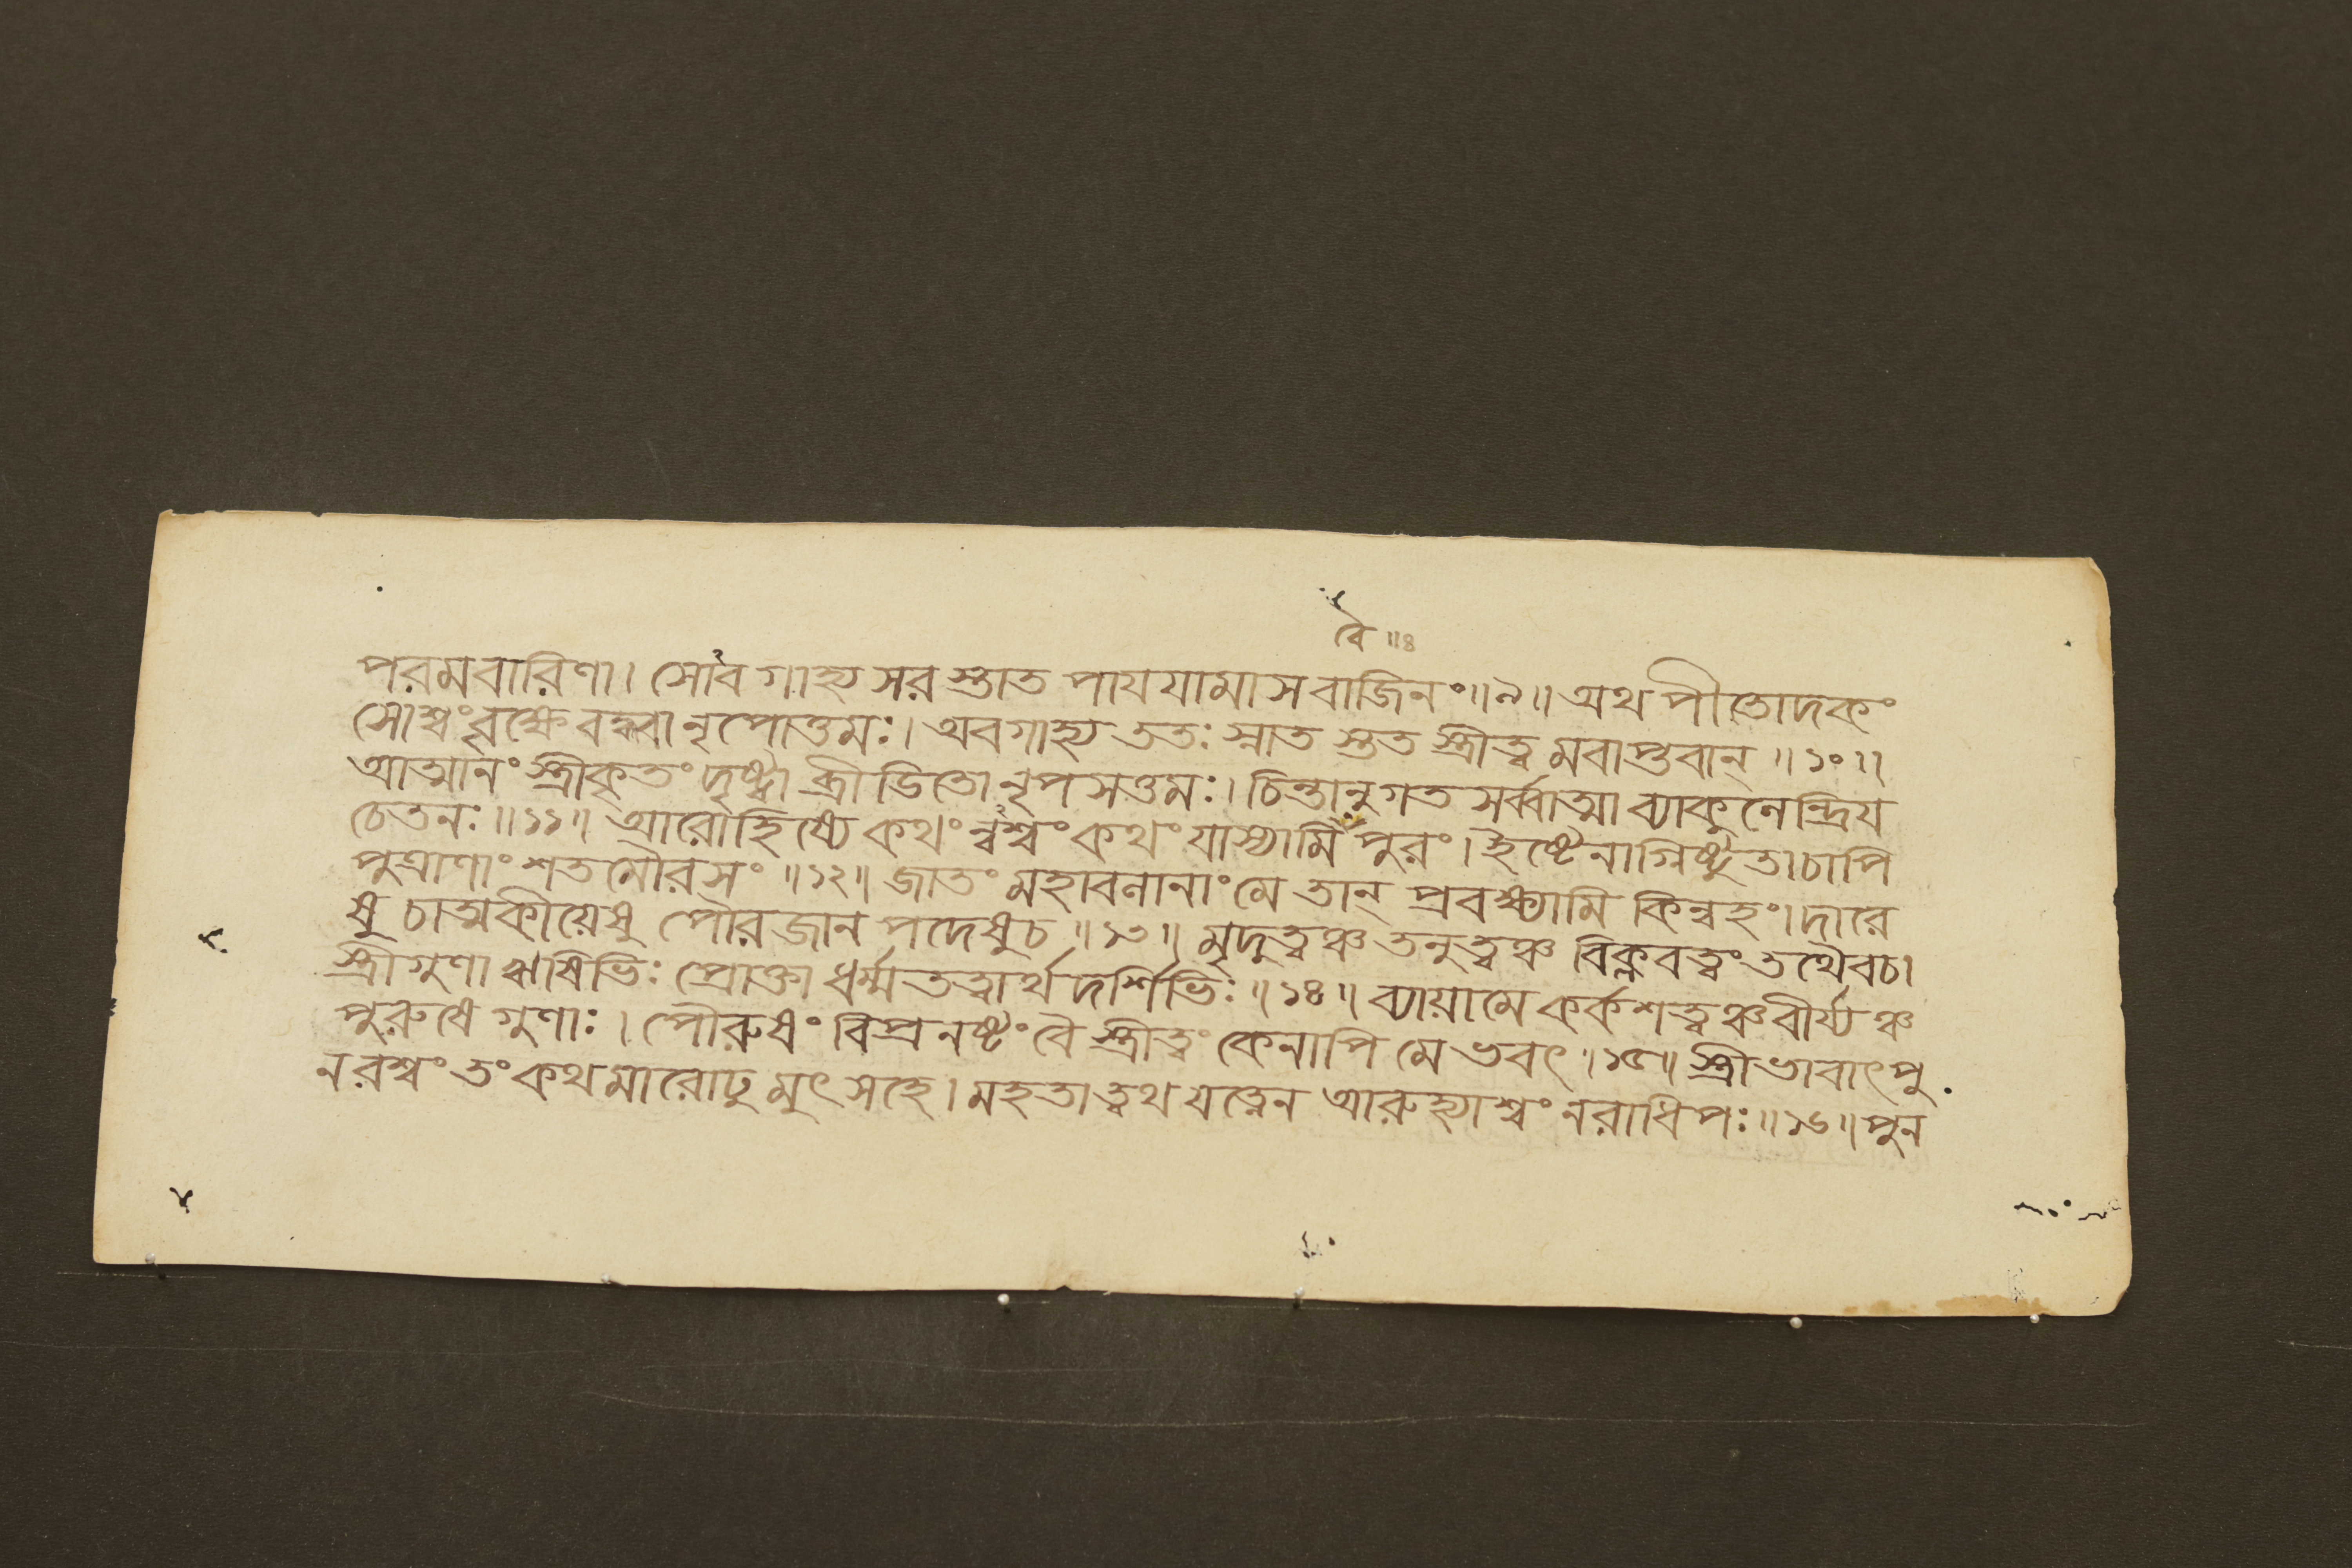 বৈ ॥৪
পরমবারিণা। সোঽবগাহ্য সরস্তাত পায়যামাস বাজিনং॥৯॥ অথ পীতোদকং
সোশ্বংবৃক্ষে বহ্ববা নৃপোত্তমঃ। অবগাহ্য ততঃ স্নাত স্তত স্ত্রীত্ব মবাপ্তবান্ ॥১০॥
আত্মানং স্ত্রীকৃতং দৃষ্ট্বা ব্রীডিতো নৃপসত্তমঃ। চিন্তানুগত সর্ব্বাত্মা ব্যাকুলেন্দ্রিয
চেতনঃ॥১১॥ আরোহিষ্যে কথং ন্বশ্বং কথং যাস্যামি পুরং। ইষ্টেনাগ্নিষ্টুতা চাপি
পুত্রাণাং শতমৌরসং ॥১২॥ জাতং মহাবলানাং মে তান্ প্রবক্ষ্যামি কিন্বহং। দারে
ষু চাত্মকীয়েষু পৌরজানপদেষুচ॥১৩॥ মৃদুত্বঞ্চ তনুত্বঞ্চ বিক্লবত্বং তথৈবচ।
স্ত্রীগুণা ঋষিভিঃ প্রোক্তা ধর্ম্মতত্বার্থদর্শিভিঃ॥১৪॥ ব্যায়ামে কর্কশত্বঞ্চ বীর্য্যঞ্চ
পুরুষে গুণাঃ। পৌরুষং বিপ্রনষ্টং বৈ স্ত্রীত্বং কেনাপি মে ভবৎ।১৫॥ স্ত্রীভাবাৎপু
নরশ্বং তং কথমারোঢুমুৎসহে। মহতা ত্বথ যত্নেন আরুহ্যাশ্বং নরাধিপঃ॥১৬॥ পুন